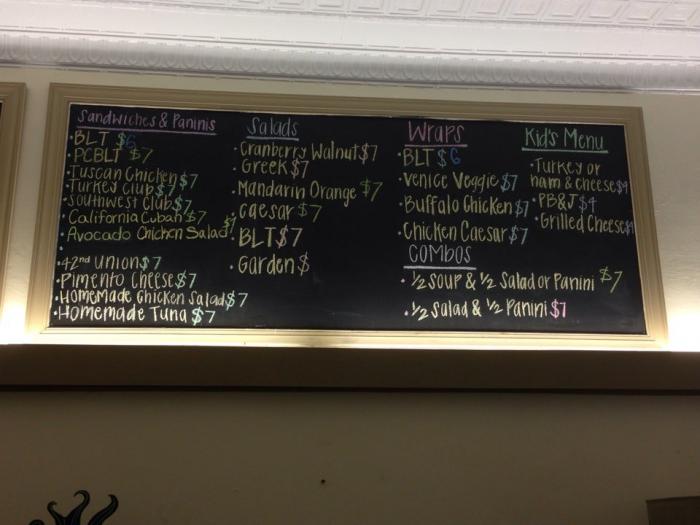 Sandwiches & Paninis
• BLT $6
• PCBLT $7
• Tuscan Chicken $7
• Turkey Club $7
• Southwest Club $7
• California Cuban $7
• Avocado Chicken Salad $7
•
• 42nd Union $7
• Pimento Cheese $7
• Homemade Chicken Salad $7
• Homemade Tuna $7
Salads
• Cranberry Walnut $7
• Greek $7
• Mandarin Orange $7
• Caesar $7
• BLT $7
• Garden $
Wraps
• BLT $6
• Venice Veggie $7
• Buffalo Chicken $7
• Chicken Caesar $7
COMBOS
• 1/2 Soup & 1/2 Salad or Panini $7
• 1/2 Salad & 1/2 Panini $7
Kid's Menu
• Turkey or
ham & cheese $4
• PB&J $4
• Grilled Cheese $4